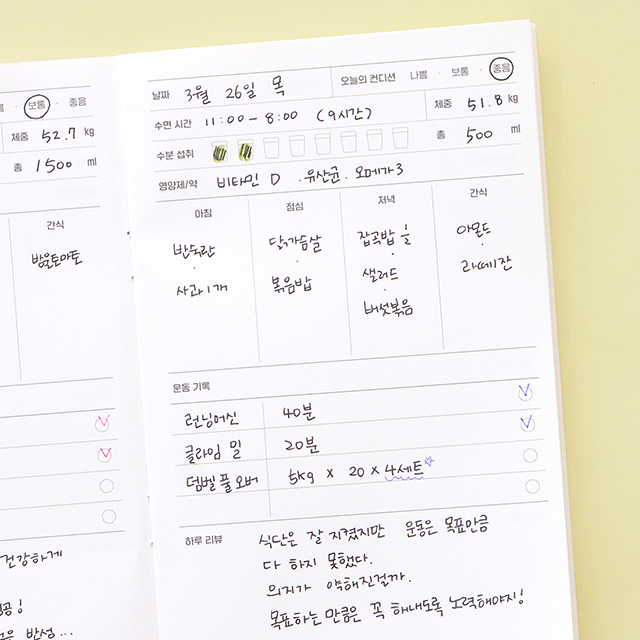 보통 · 좋음
체중 52.7 kg
총 1500 ml
간식
방울토마토
건강하게
반성...
날짜 3월 26일 목 오늘의 컨디션 나쁨 · 보통 · 좋음
수면 시간 11:00 - 8:00 (9시간) 체중 51.8 kg
수분 섭취 총 500 ml
영양제/약 비타민 D . 유산균 . 오메가3
아침 점심 저녁 간식
반숙란 닭가슴살 잡곡밥 ½ 아몬드
사과1개 볶음밥 샐러드 라떼1잔
버섯볶음
운동 기록
런닝머신 40분
클라임 밀 20분
덤벨 풀 오버 5kg x 20 x 4세트☆
하루 리뷰 식단은 잘 지켰지만 운동은 목표만큼
다 하지 못했다.
의지가 약해진걸까.
목표하는 만큼은 꼭 해내도록 노력해야지!